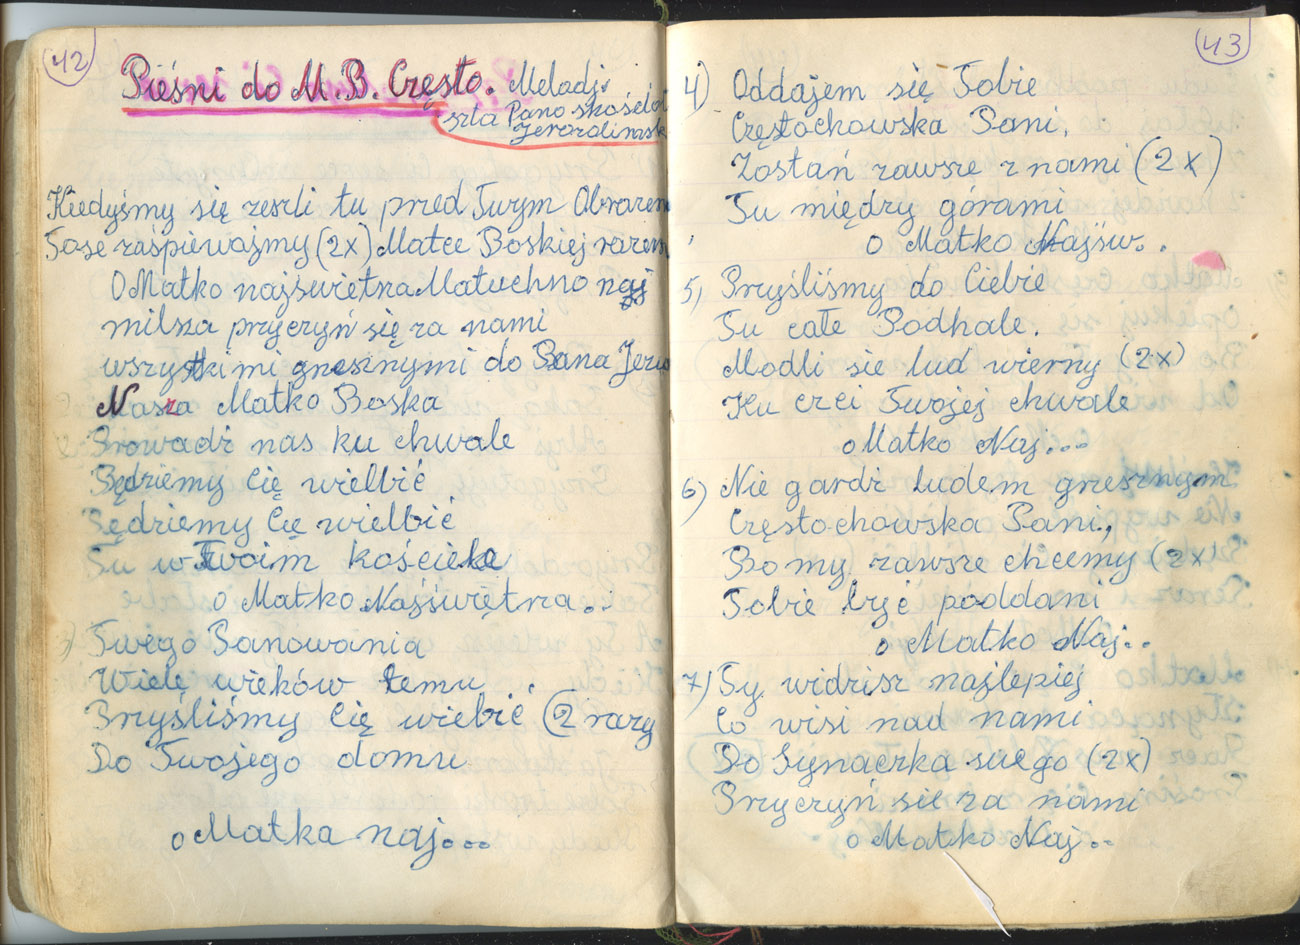 42
Pieśni do M.B. Często. Melodji
szła Pano kościeloi
Jerozolimsk
Kiedyśmy się zeszli tu przed Twym Obrazem
Tose zaśpiewajmy (2x) Matce Boskiej razem
O Matko najświetna Matuchno naj
milsza przyczyń się za nami
wszystkimi grzesznymi do Pana Jezu
Nasza Matko Boska
Prowadź nas ku chwale
Będziemy Cię wielbić
Będziemy Cię wielbić
Tu w Twoim kościele
O Matko Najświętza..
3) Twego Panowania
Wielę wieków temu..
Przyśliśmy Cię wielbić (2 razy
Do Twojego domu
o Matka naj...
43
4) Oddajem się Tobie
Częstochowska Pani,
Zostań zawsze z nami (2x)
Tu między górami
o Matko Najśw..
5) Przyśliśmy do Ciebie
Tu całe Podhale.
Modli sie lud wierny (2x)
Ku czci Twojej chwale
o Matko Naj...
6) Nie gardź ludem grzesznym
Częstochowska Pani,
Bo my zawsze chcemy (2x
Tobie być poddani
o Matko Naj..
7) Ty widzisz najlepiej
Co wisi nad nami
Do Synaczka swego (2x)
Przyczyń sie za nami
o Matko Naj..